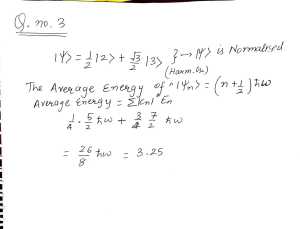 Q. no. 3
|Ψ> = 1/2 |2> + √3/2 |3> } → |Ψ> is Normalised
(Harm. Os)
The Average Energy of "|Ψn> = (n + 1/2) ħω
Average Energy = Σ|Cn|² En
1/4 . 5/2 ħω + 3/4 7/2 ħω
= 26/8 ħω = 3.25